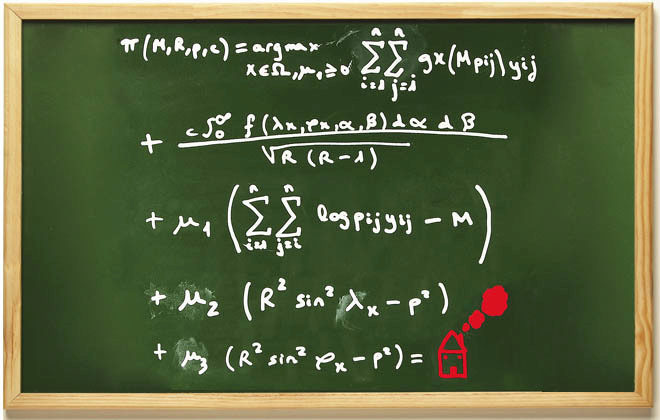 π(M,R,p,c) = argmax
x∈Ω,μ₁≥0 n∑i=1 n∑j=1 gx(Mpij)yij
+ c∫₀^∞ f(λx,φx,α,β)dα dβ
√R (R-1)
+ μ₁ (n∑i=1 n∑j=i logpijyij - M)
+ μ₂ (R² sin² λx - p²)
+ μ₃ (R² sin² φx - p²) =